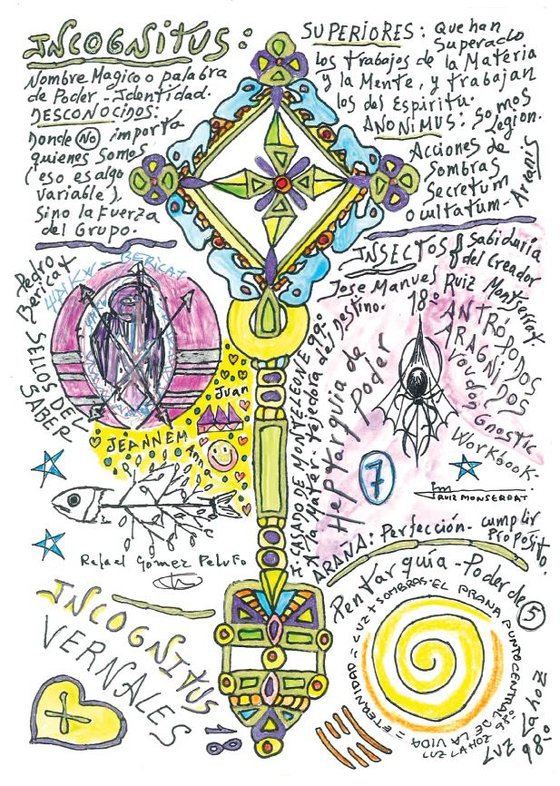 INCOGNITUS:
Nombre Magico o palabra
de Poder - Identidad.
DESCONOCIDOS:
Donde NO importa
quienes somos
(eso es algo
variable).
Sino la Fuerza
del Grupo.
SUPERIORES: Que han
Superado
los trabajos de la Matéria
y la Mente, y trabajan
los del Espiritu.
ANONIMUS: Somos
Legion.
Acciones de
Sombras
Secretum
Ocultatum-
INSECTOS
Sabiduria
del Creador
Jose Manuel Ruiz Montserrat
18º
ANTROPODOS
ARAGNIDOS
Voudoygnostic
Workbook
RUIZ MONSERRAT
Pedro
Bericat
BERICAT
SELLOS DEL
SABER
Juan
JEANNEM
Anna
Rafael Gómez Pelufo
A. CASADO DE MONTELEONE 99º
Heptarquia de
poder
7
ARAÑA: Perfección - cumplir
Proposito.
Pentarquía - Poder de 5
ETERNIDAD = LUZ + SOMBRAS - EL PRANA PUNTO CENTRAL DE LA VIDA =
INCOGNITUS
VERNALES
18
98º